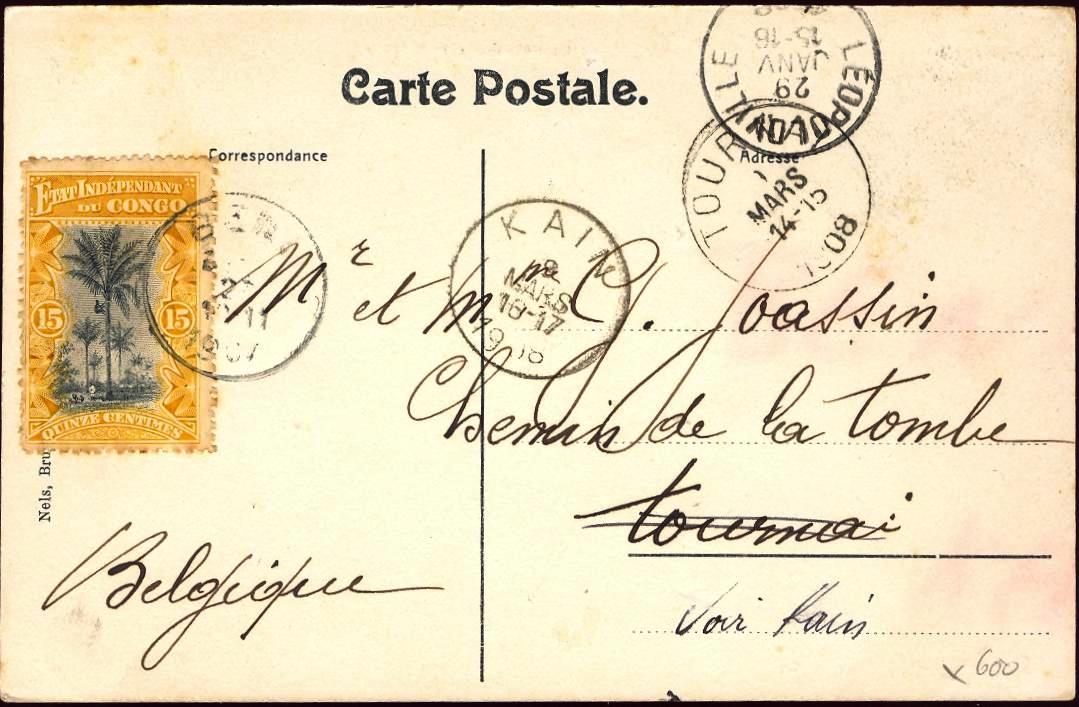 Carte Postale.
Correspondance
Adresse
ETAT INDÉPENDANT
DU CONGO
15 15
QUINZE CENTIMES
1907
LÉOPOLDVILLE
29
JANV
15-16
TOURNAI
MARS
14-15
1908
KAIN
8
MARS
16-17
1908
Mr et Mme C. Joassin
Chemin de la tombe
tournai
Voir Kain
Belgique
Nels, Bru
600